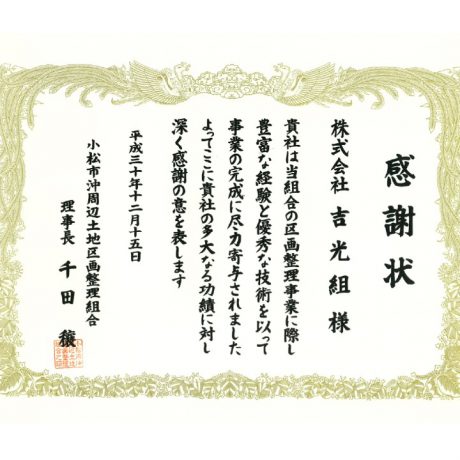 感謝状
株式会社 吉光組 様
貴社は当組合の区画整理事業に際し
豊富な経験と優秀な技術を以って
事業の完成に尽力寄与されました
よってここに貴社の多大なる功績に対し
深く感謝の意を表します
平成三十年十二月十五日
小松市沖周辺土地区画整理組合
理事長 千田